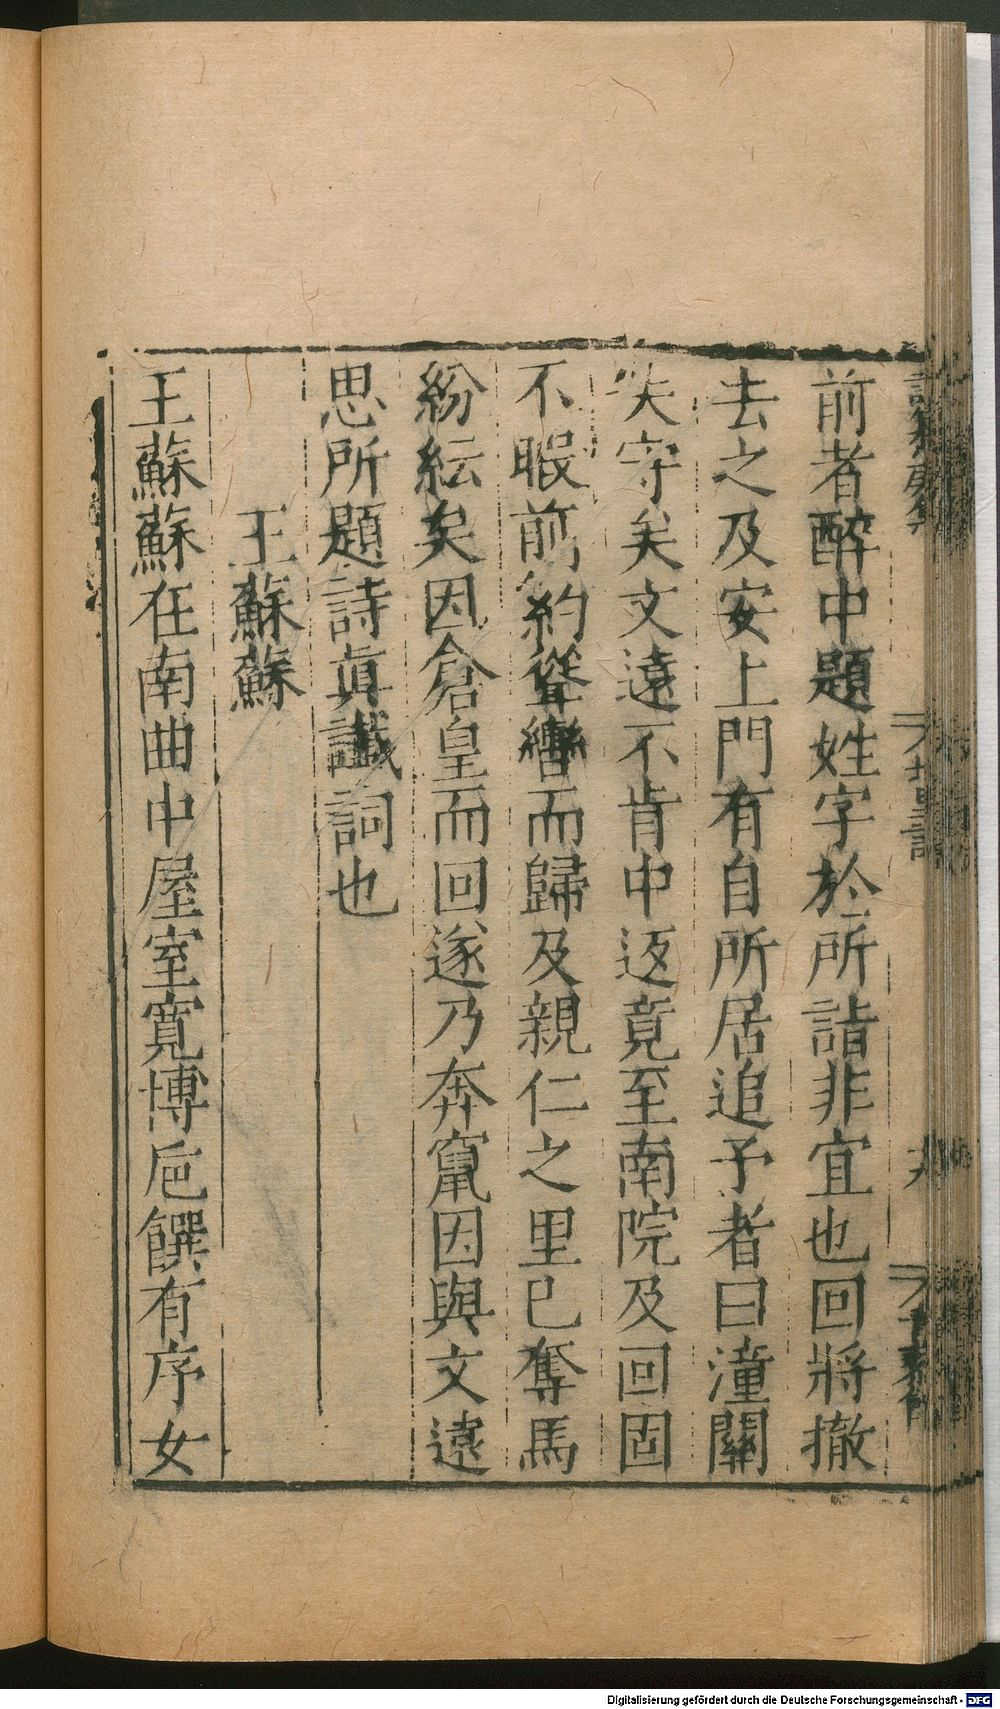 前者醉中題姓字於所詣非宜也回將撤
去之及安上門有自所居追予者曰潼關
失守矣文遠不肯中返竟至南院及回固
不暇前約聳轡而歸及親仁之里已奪馬
紛紜矣因倉皇而回遂乃奔竄因與文遠
思所題詩眞讖詞也
王蘇蘇
王蘇蘇在南曲中屋室寬博巵饌有序女
Digitalisierung gefördert durch die Deutsche Forschungsgemeinschaft - DFG